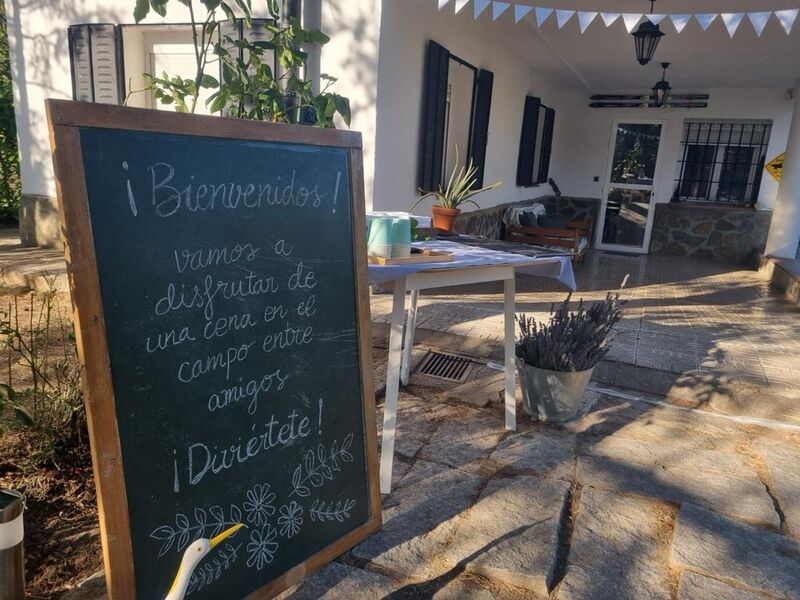 ¡Bienvenidos!
vamos a
disfrutar de
una cena en el
campo entre
amigos
¡Diviértete!